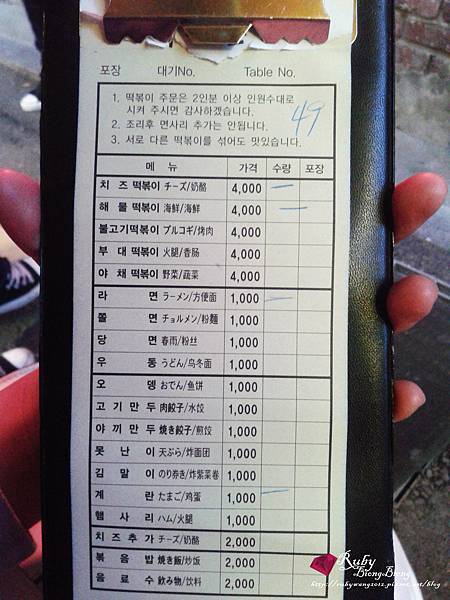 포장 대기No. Table No.
1. 떡볶이 주문은 2인분 이상 인원수대로
시켜 주시면 감사하겠습니다.
2. 조리후 면사리 추가는 안됩니다.
3. 서로 다른 떡볶이를 섞어도 맛있습니다.
49
메 뉴 가격 수량 포장
치 즈 떡볶이 チーズ/奶酪 4,000 一
해 물 떡볶이 海鮮/海鲜 4,000 一
불고기떡볶이 プルコギ/烤肉 4,000
부 대 떡볶이 火腿/香肠 4,000
야 채 떡볶이 野菜/蔬菜 4,000
라 면 ラーメン/方便面 1,000 一
쫄 면 チョルメン/粉麵 1,000
당 면 春雨/粉丝 1,000
우 동 うどん/乌冬面 1,000
오 뎅 おでん/鱼饼 1,000
고 기 만 두 肉餃子/水饺 1,000
야 끼 만 두 焼き餃子/煎饺 1,000
못 난 이 天ぷら/炸面团 1,000
김 말 이 のり弁き/炸紫菜卷 1,000
계 란 たまご/鸡蛋 1,000 一
햄 사 리 ハム/火腿 1,000
치 즈 추 가 チーズ/奶酪 2,000
볶 음 밥 焼き飯/炒饭 2,000
음 료 수 飲み物/饮料 2,000
Ruby
Biong Biong
http://rubywang2012.pixnet.net/blog